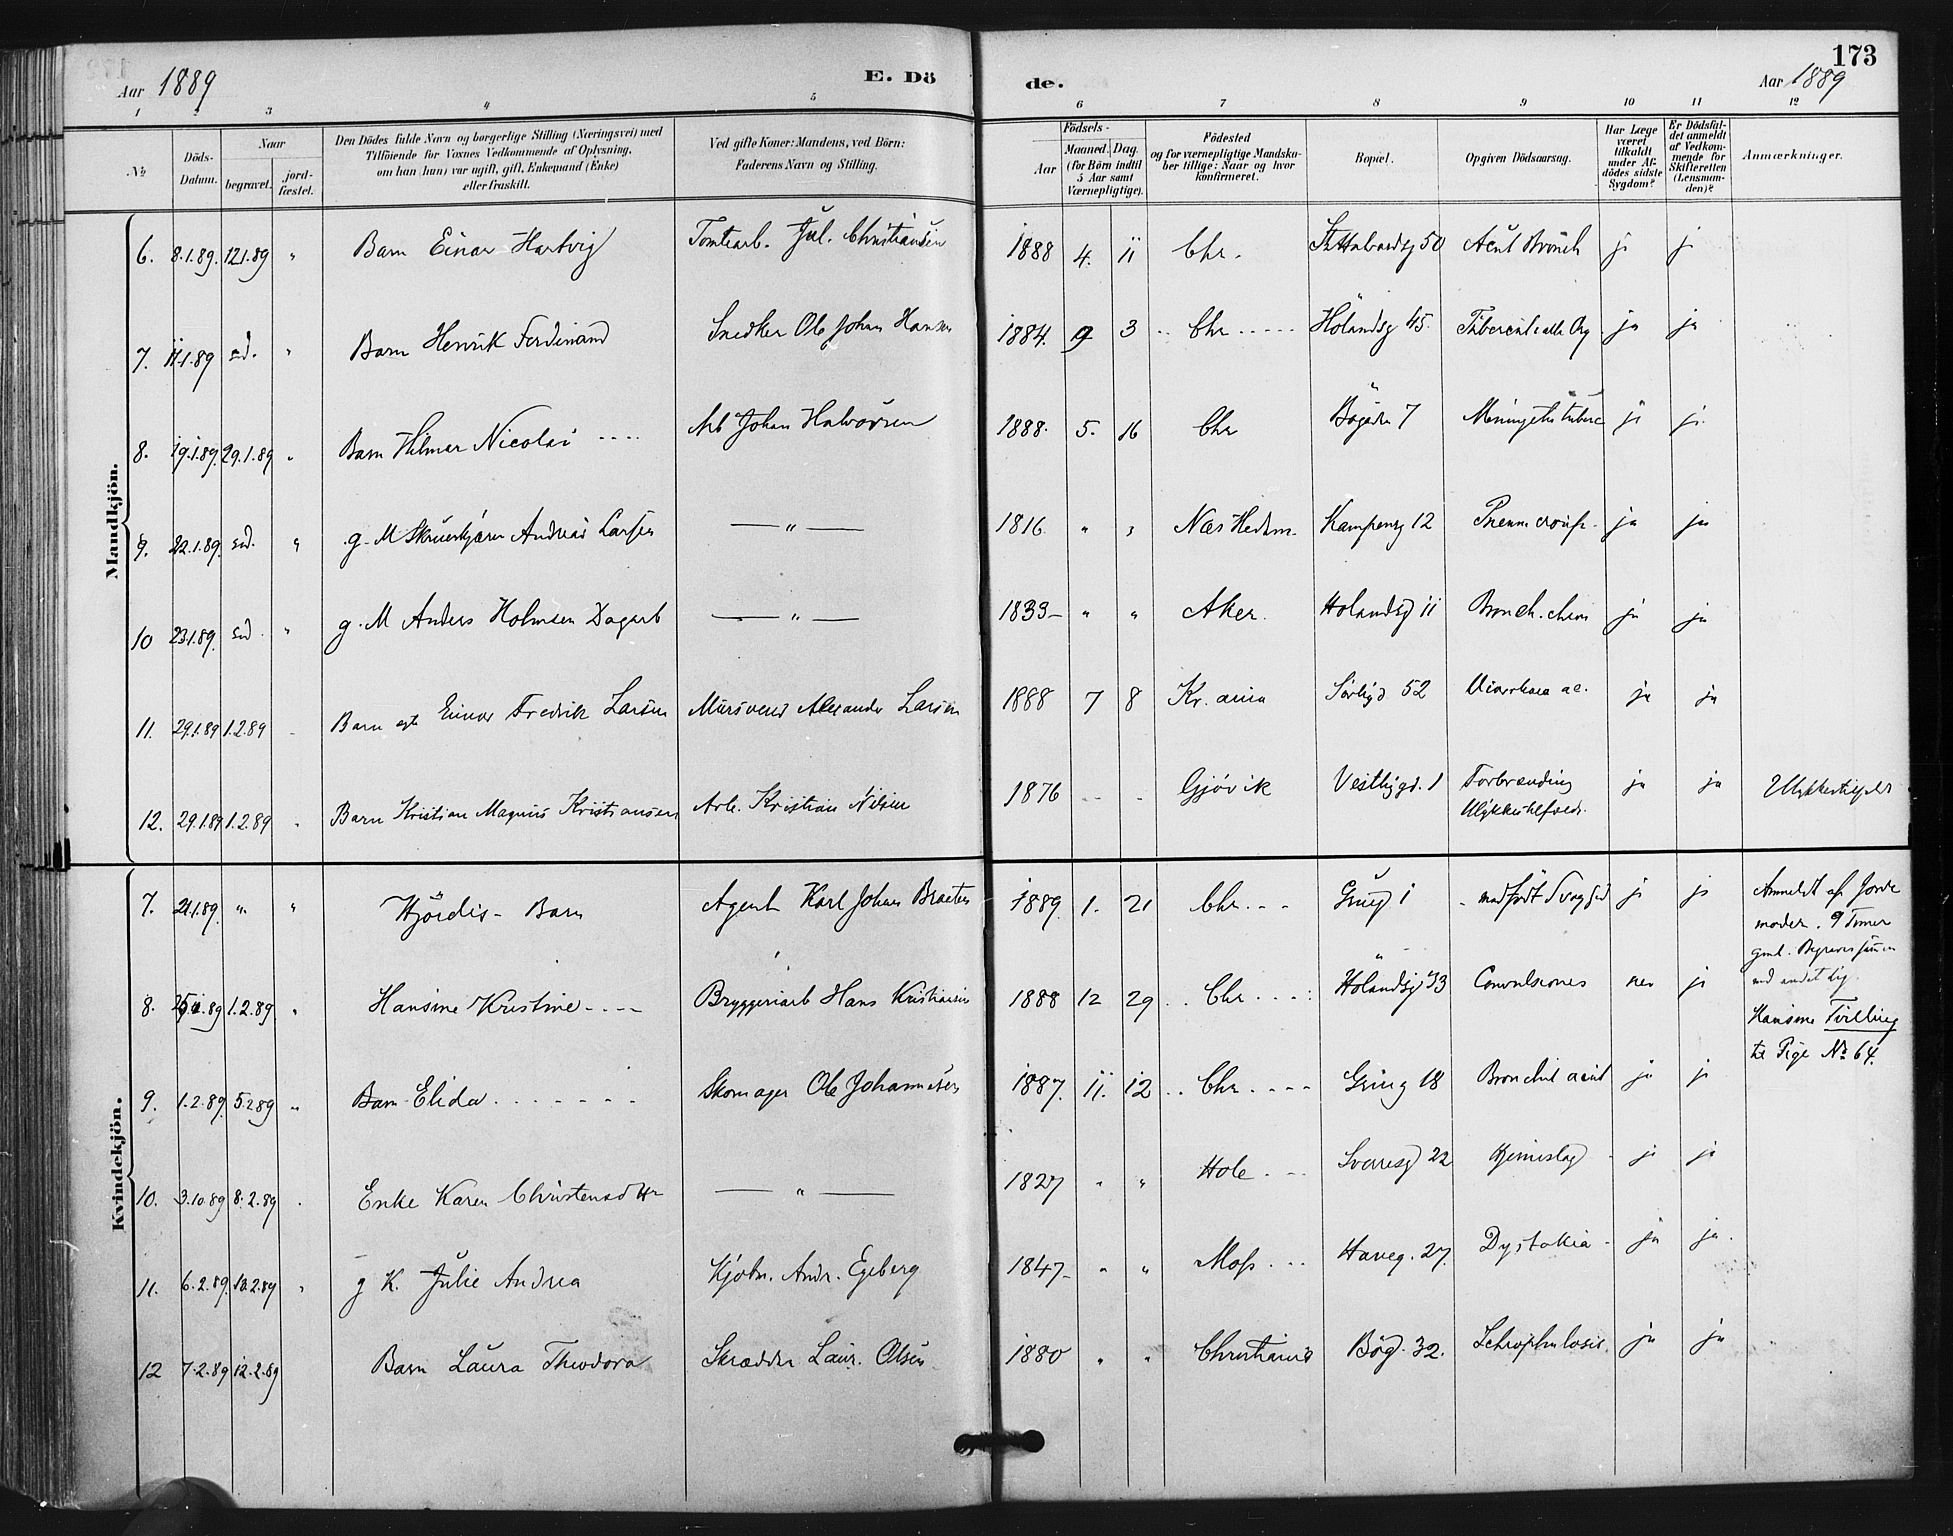 173
Aar 1889 E. Dö de. Aar 1889
1 2 3 4 5 6 7 8 9 10 11 12
No
Döds-Datum.
Naar
begravet.
jord-fæstet.
Den Dödes fulde Navn og borgerlige Stilling (Næringsvei) med
Tilföiende for Voxnes Vedkommende af Oplysning,
om han (hun) var ugift, gift, Enkemand (Enke)
eller fraskilt.
Ved gifte Koner: Mandens, ved Börn:
Faderens Navn og Stilling.
Födsels-
Aar
Maaned. Dag.
(for Börn indtil
5 Aar samt
Værnepligtige).
Födested
og for værnepligtige Mandskaber tillige: Naar og hvor
konfirmeret.
Bopæl.
Opgiven Dödsaarsag.
Har Læge
været
tilkaldt
under Af-
dödes sidste
Sygdom?
Er Dödsfal-
det anmeldt
af Vedkom-
mende for
Skifteretten
(Lensman-
den)?
Anmærkninger.
Mandkjön.
6. 8.1.89. 12.1.89 " Barn Einar Hartvig Tomtearb. Jul. Christiansen 1888 4. 11 Chr. St Halvardsg 50 Acut Bronch ja ja
7. 11.1.89 sd. " Barn Henrik Ferdinand Snedker Ole Johan Hansen 1884. 9 3 Chr Hölandsg 45. ja ja
8. 19.1.89. 29.1.89 " Barn Hilmar Nicolai Arb Johan Halvorsen 1888. 5. 16 Chr Bögaden 7 Meningitis tuberc ja ja
9. 22.1.89. sd. " g. M Andreas Larsen — " — 1816 " " Næs Hedm. Kampeng 12 Pneum croup. ja ja
10 23.1.89. sd. " g. M Anders Holmsen Dagarb — " — 1833 " " Aker. Holandsg 11 Bronch. chron ja ja
11. 29.1.89 1.2.89 Barn egte Einar Fredrik Larsen Mursvend Alexander Larsen 1888 7 8 Kr.ania Sørligd 52 Diarrhoea ac. ja ja
12. 29.1.89 1.2.89 Barn Kristian Magnus Kristiansen Arb. Kristian Nilsen 1876 Gjøvik Vestbygd. 1 Forbrænding ja ja
Ulykkestilfælde.
Kvindekjön.
7. 21.1.89. " " Hjördis - Barn Agent Karl Johan Braaten 1889. 1. 21 Chr. Grüg 1 medfödt Svaghed ja ja Anmeldt af Jorde
moder. 9 Timer
gml.
med andet Lig.
8. 1.2.89. " Hansine Kristine Bryggeriarb Hans Kristiansen 1888 12 29 Chr. Hölandsg 33 Convulsiones nei ja
Hansine Tvilling
til Pige No 64.
9. 1.2.89. 5.2.89 " Barn Elida Skomager Ole Johannesen 1887. 11. 12 Chr. Grüg 18 Bronchit acut ja ja
10. 3.10.89 8.2.89 Enke Karen Christensdttr — " — 1827 " " Hole Sverresg 22 Hjerneslag ja ja
11. 6.2.89. 10.2.89 " g K. Julie Andrea Kjøbm. Andr. Egeberg 1847 " " Moss Haveg. 27. Dystokia ja ja.
12 7.2.89. 12.2.89 Barn Laura Theodora Skrædder Laur. Olsen 1880 " " Christiania Bög. 32. Schrophulosis. ja ja